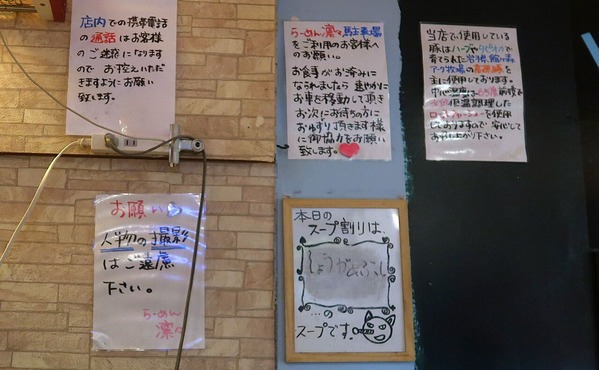 店内での携帯電話
の通話はお客様
のご迷惑になります
ので お控えいただ
きますようにお願い
致します。
お願い
人物の撮影
はご遠慮
下さい。
らーめん
凛々
らーめん凛々駐車場
をご利用のお客様へ
のお願い。
お食事がお済みに
なられましたら 速やかに
お車を移動して頂き
お次にお待ちの方に
おゆずり頂きます様
に御協力をお願い
致します。
本日の
スープ割りは、
しょうが
…の
スープです!
当店で使用している
豚はハーブや
育てられた岩手県、館ヶ森
アーク牧場の
主に使用しております。
中心温度は65度前後で
低温調理した
ローストチャーシューを使用
しておりますので 安心して
お召し上がり下さい。